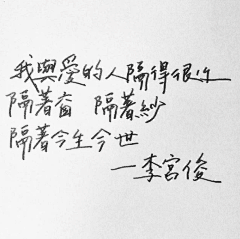 我與愛的人隔得很近
隔著窗 隔著紗
隔著今生今世
—李宮俊